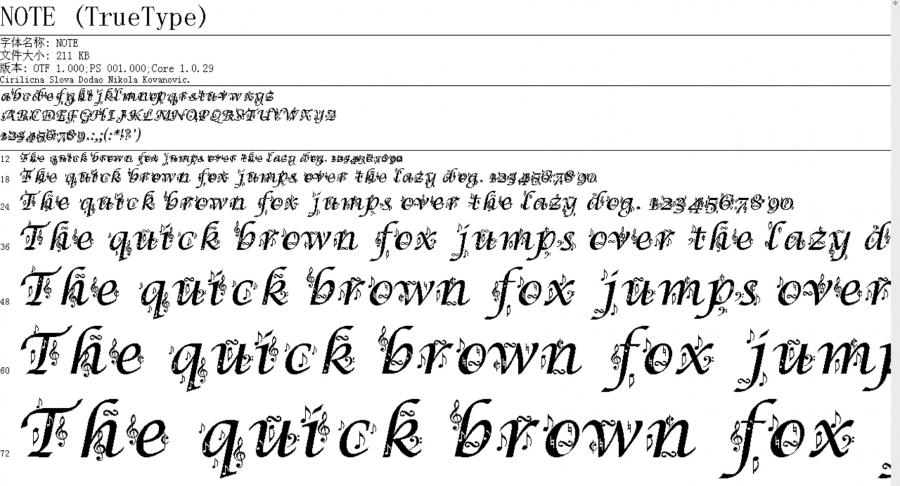 NOTE (TrueType)
字体名称: NOTE
文件大小: 211 KB
版本: OTF 1.000;PS 001.000;Core 1.0.29
Cirilicna Slova Dodao Nikola Kovanovic.
abcdefghijklmnopqrstuvwxyz
ABCDEFGHIJKLMNOPQRSTUVWXYZ
123456789.:,;(:*!?')
12 The quick brown fox jumps over the lazy dog. 1234567890
18 The quick brown fox jumps over the lazy dog. 1234567890
24 The quick brown fox jumps over the lazy dog. 1234567890
36 The quick brown fox jumps over the lazy d
48 The quick brown fox jumps over
60 The quick brown fox jump
72 The quick brown fox